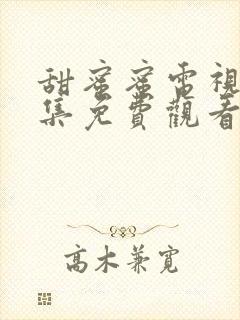 甜蜜蜜電視
集免費觀看
高木兼寬